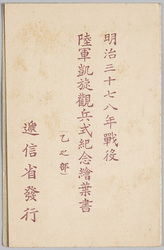 明治三十七八年戰役
陸軍凱旋觀兵式紀念繪葉書
乙之部
遞信省發行